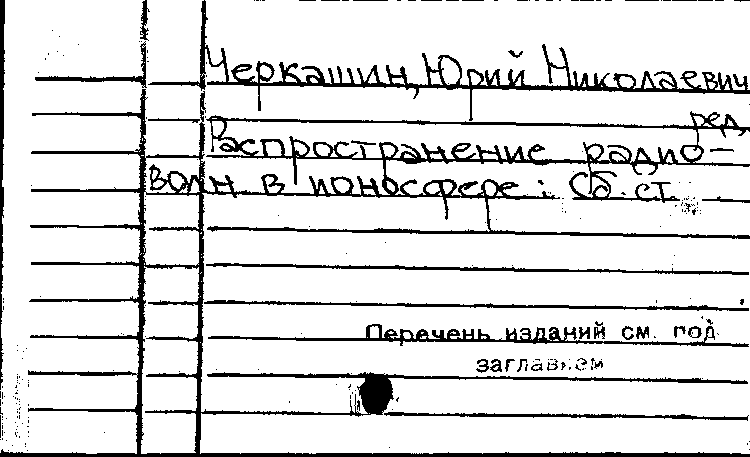 Черкашин, Юрий Николаевич
ред.
Распространение радио-
волн в ионосфере: Сб. ст.
Перечень изданий см. под
заглавием